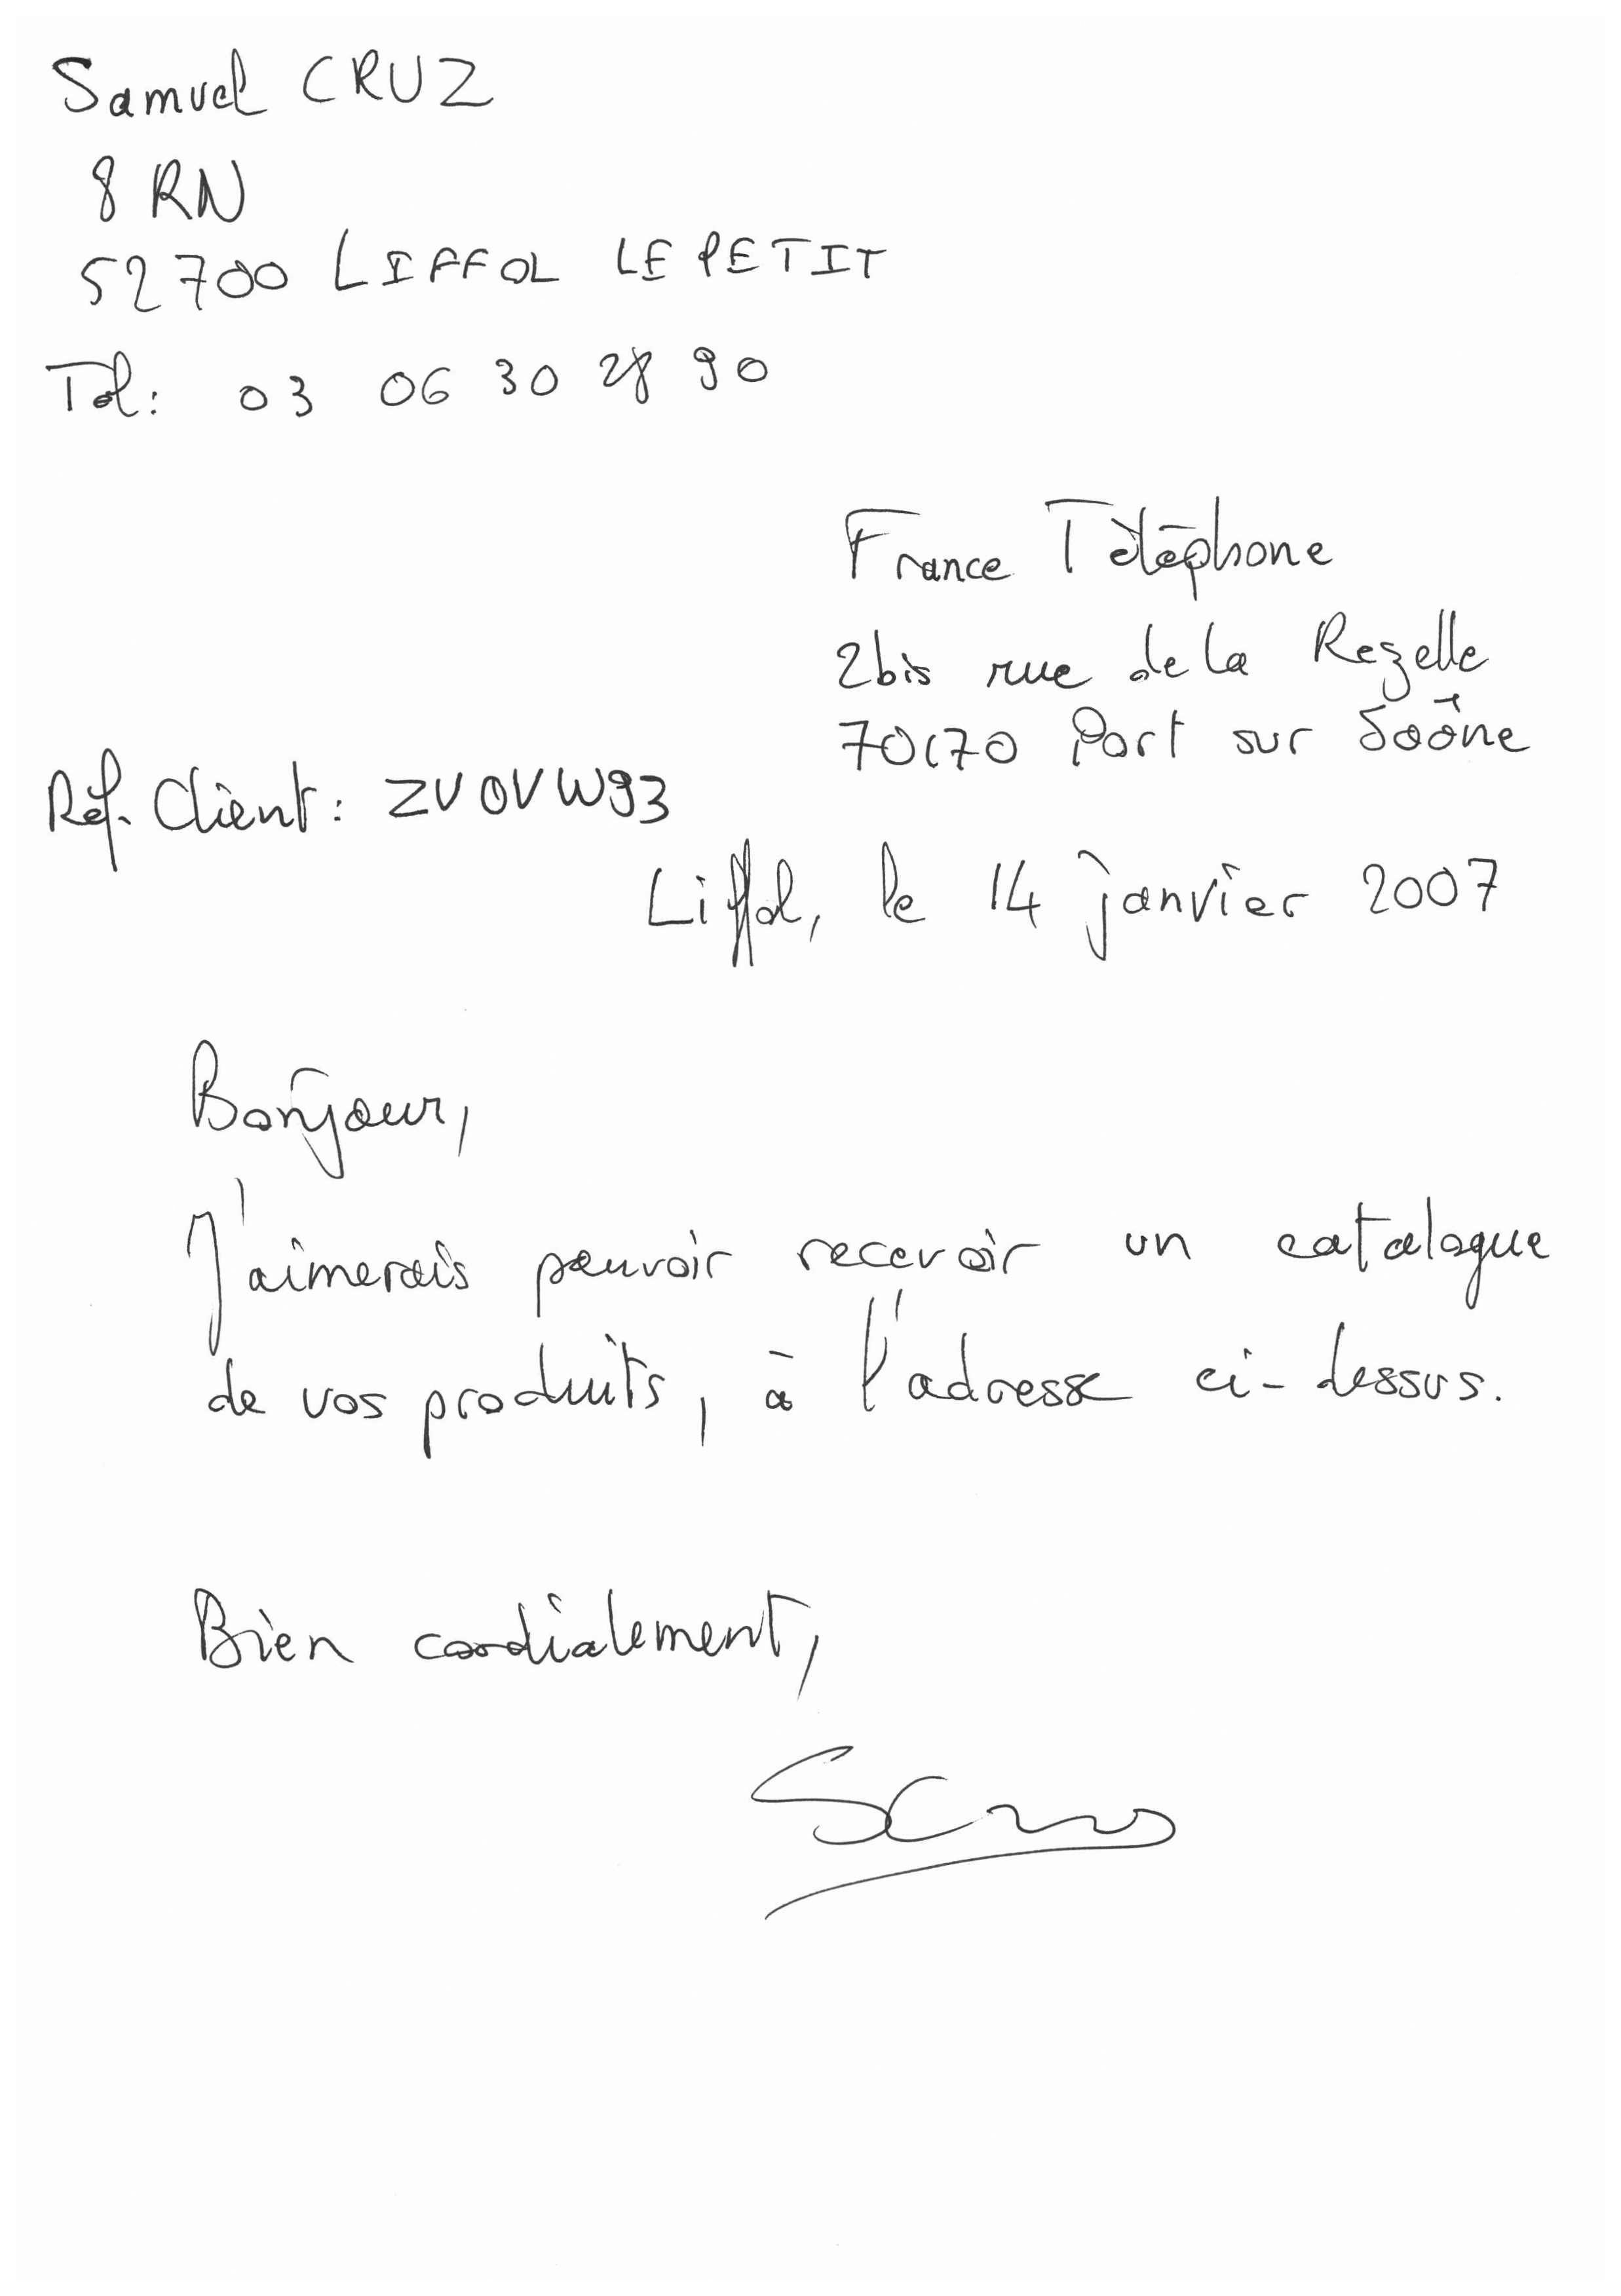 Samuel CRUZ
8 RN
52700 LIFFOL LE PETIT
Tel: 03 06 30 28 90
France Téléphone
2bis rue de la Rezelle
70170 Port sur Saône
Réf. Client: ZVOVW93
Liffol, le 14 janvier 2007
Bonjour,
J'aimerais pouvoir recevoir un catalogue
de vos produits, à l'adresse ci-dessus.
Bien cordialement,
SCruz